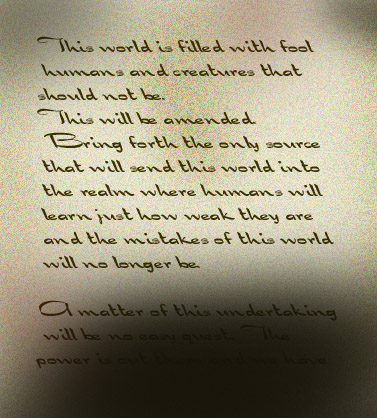 This world is filled with fool
humans and creatures that
should not be.
This will be amended.
Bring forth the only source
that will send this world into
the realm where humans will
learn just how weak they are
and the mistakes of this world
will no longer be.
A matter of this undertaking
will be no easy quest. The
power is